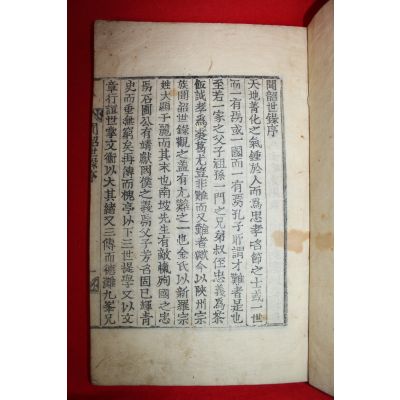 聞韶世錄序
天地菁化之氣鍾於人而爲忠孝名節之士或一世
而一有焉或一國而一有焉孔子所謂才難者是也
至若一家之父子祖孫一門之兄弟叔侄忠義爲茶
飯誠孝爲裘葛尤豈非難而又難者歟今以陜州宗
族聞韶世錄觀之蓋有尤難之一也金氏以新羅宗
姓大顯于麗而其末也南坡先生有敵殉國之忠
焉石圃公有蜻獻因俟之義焉父子芳名固已輝靑
史而垂無窮矣再傳而槐亭以下三世提學又以文
章行誼世掌文衡以大其緖又三傳而德難九峯兄
聞韶世錄序
一